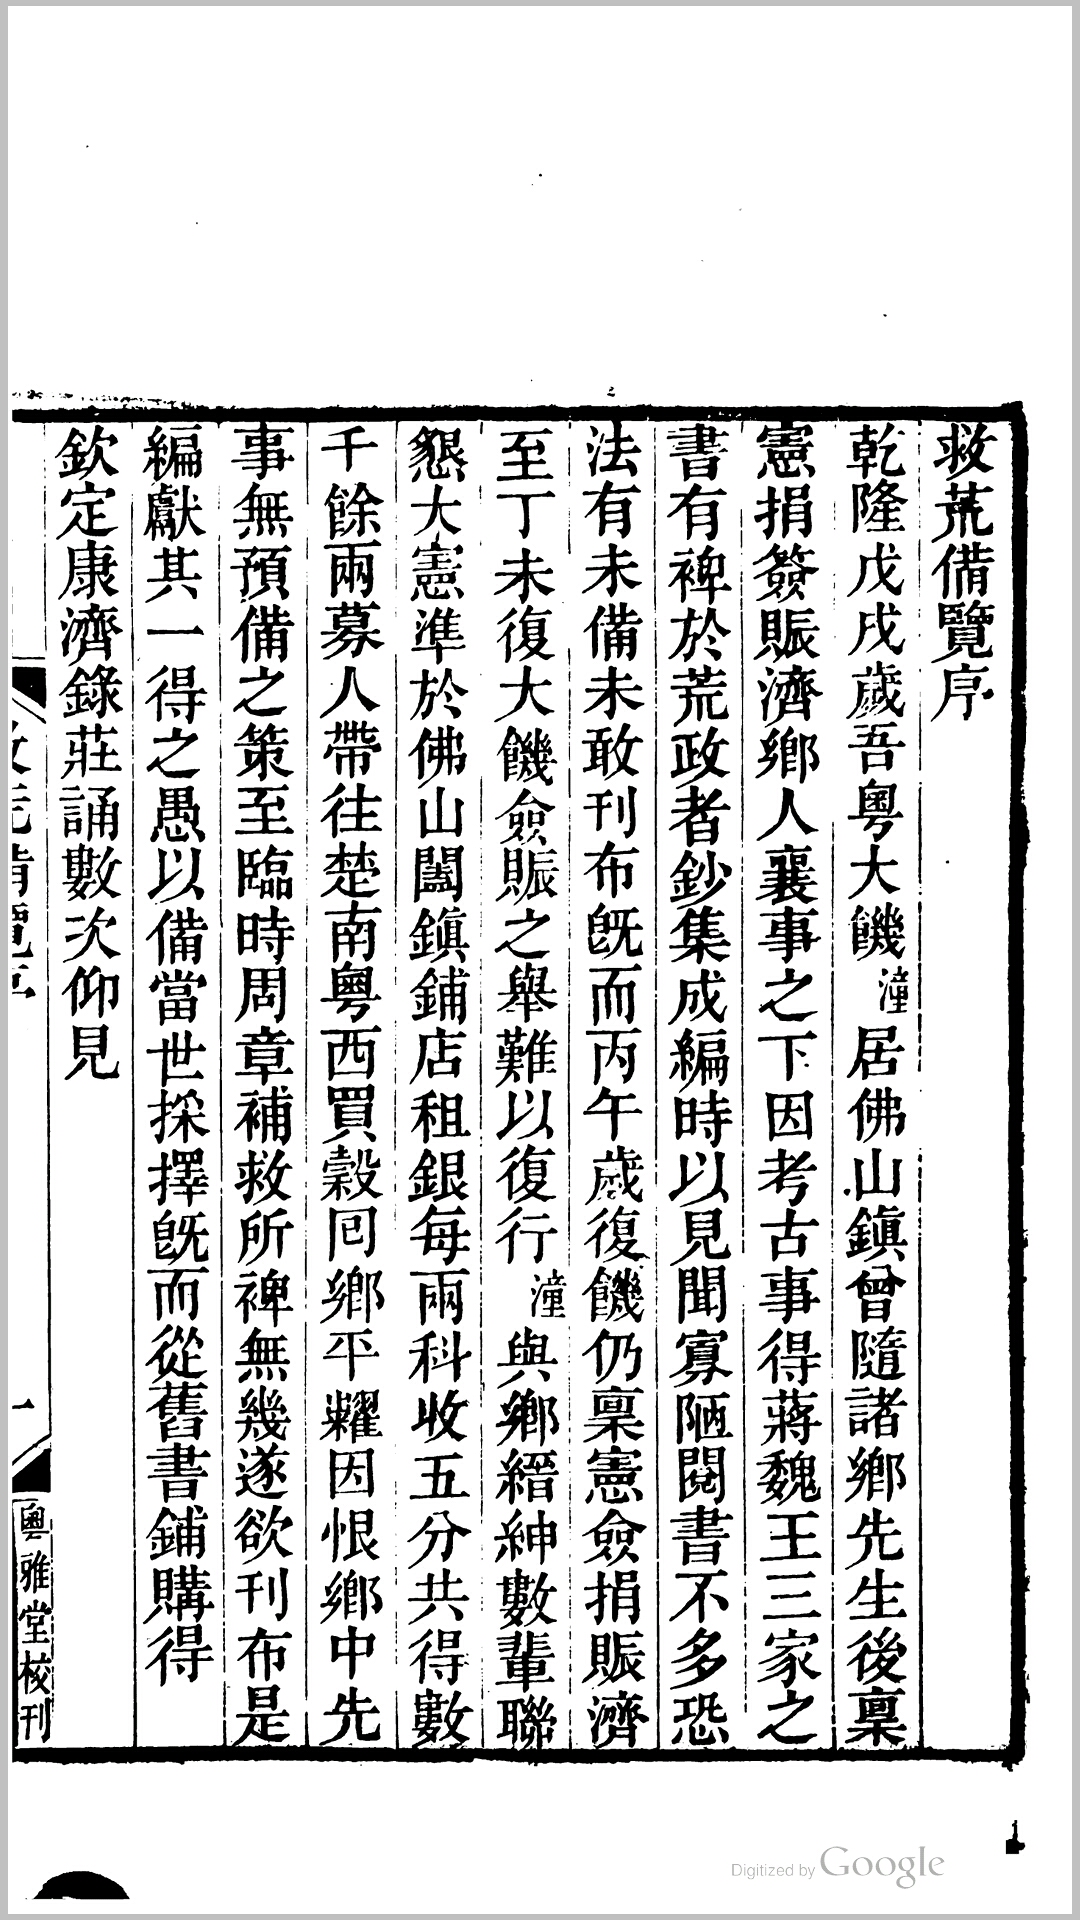 救荒備覽序
乾隆戊戌歲吾粵大饑潼居佛山鎮曾隨諸鄉先生後稟
憲捐簽賑濟鄉人襄事之下因考古事得蔣魏王三家之
書有裨於荒政者鈔集成編時以見聞寡陋閱書不多恐
法有未備未敢刊布旣而丙午歲復饑仍稟憲僉捐賑濟
至丁未復大饑僉賑之舉難以復行潼與鄉縉紳數輩聯
懇大憲準於佛山闔鎮鋪店租銀每兩科收五分共得數
千餘兩募人帶往楚南粵西買穀囘鄉平糶因恨鄉中先
事無預備之策至臨時周章補救所裨無幾遂欲刊布是
編獻其一得之愚以備當世採擇旣而從舊書鋪購得
欽定康濟錄莊誦數次仰見
一
粵雅堂校刊
1
Digitized by Google